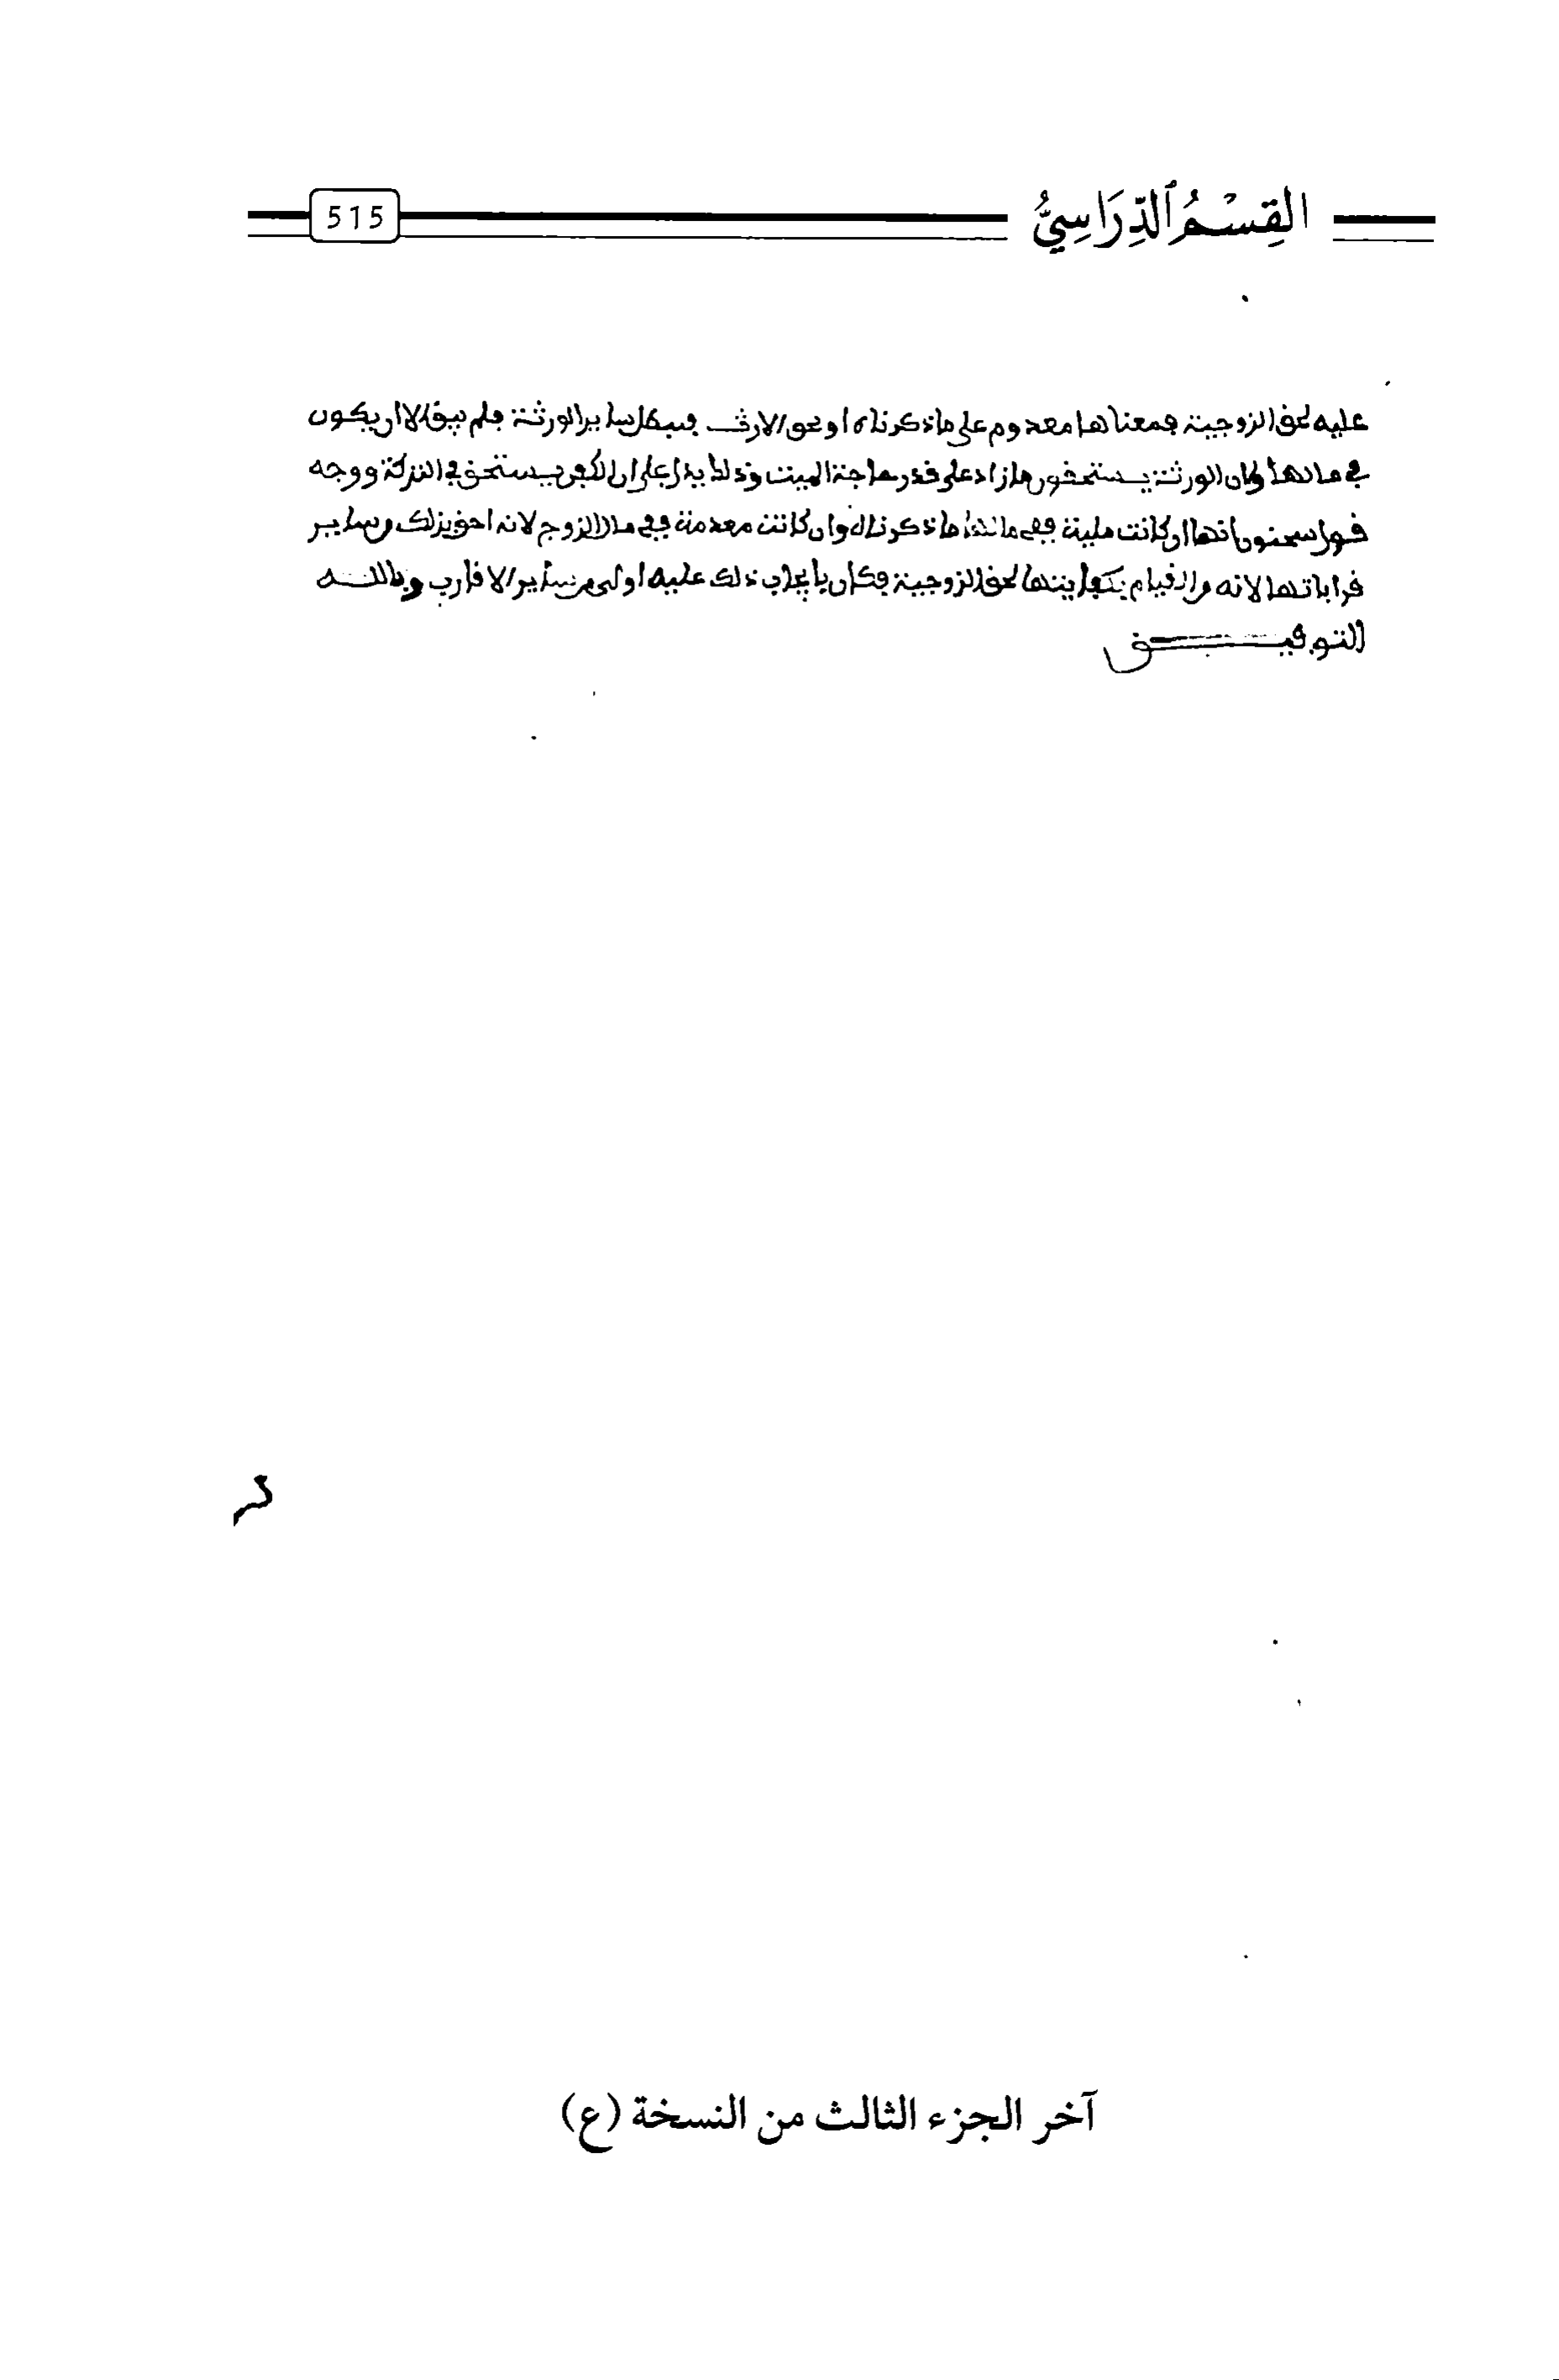 القِسْمُ ٱلدِّرَاسِيُّ
515
عليه لحق الزوجية فمعناها معدوم على ما ذكرناه او بحق الارث فيبطل بساير الورثة فلم يبق الا ان يكون
في مالها ولان الورثة يستحقون ما زاد على قدر حاجة الميت وذلك يدل على ان الكفن يستحق في التركة ووجه
قول سحنون انها ان كانت ملية ففي مالها لما ذكرناه وان كانت معدمة ففي مال الزوج لانه احق بذلك من ساير
قراباتها لانه من القيام بينهما لحق الزوجية فكان بايجاب ذلك عليه اولى من ساير الاقارب وبالله
التوفيق
آخر الجزء الثالث من النسخة (ع)